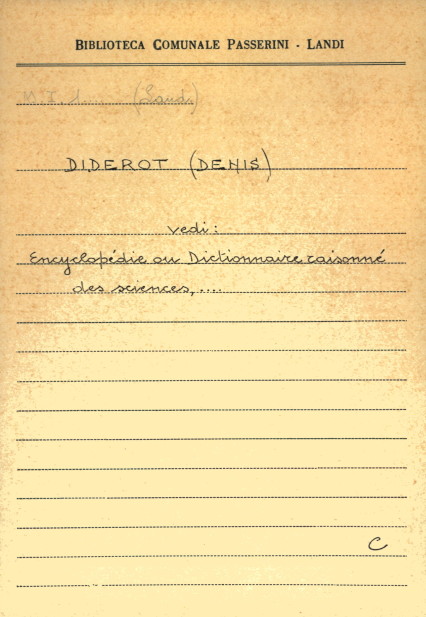 BIBLIOTECA COMUNALE PASSERINI - LANDI
(Landi)
DIDEROT (DENIS)
vedi:
Encyclopédie ou Dictionnaire raisonné
des sciences,....
C